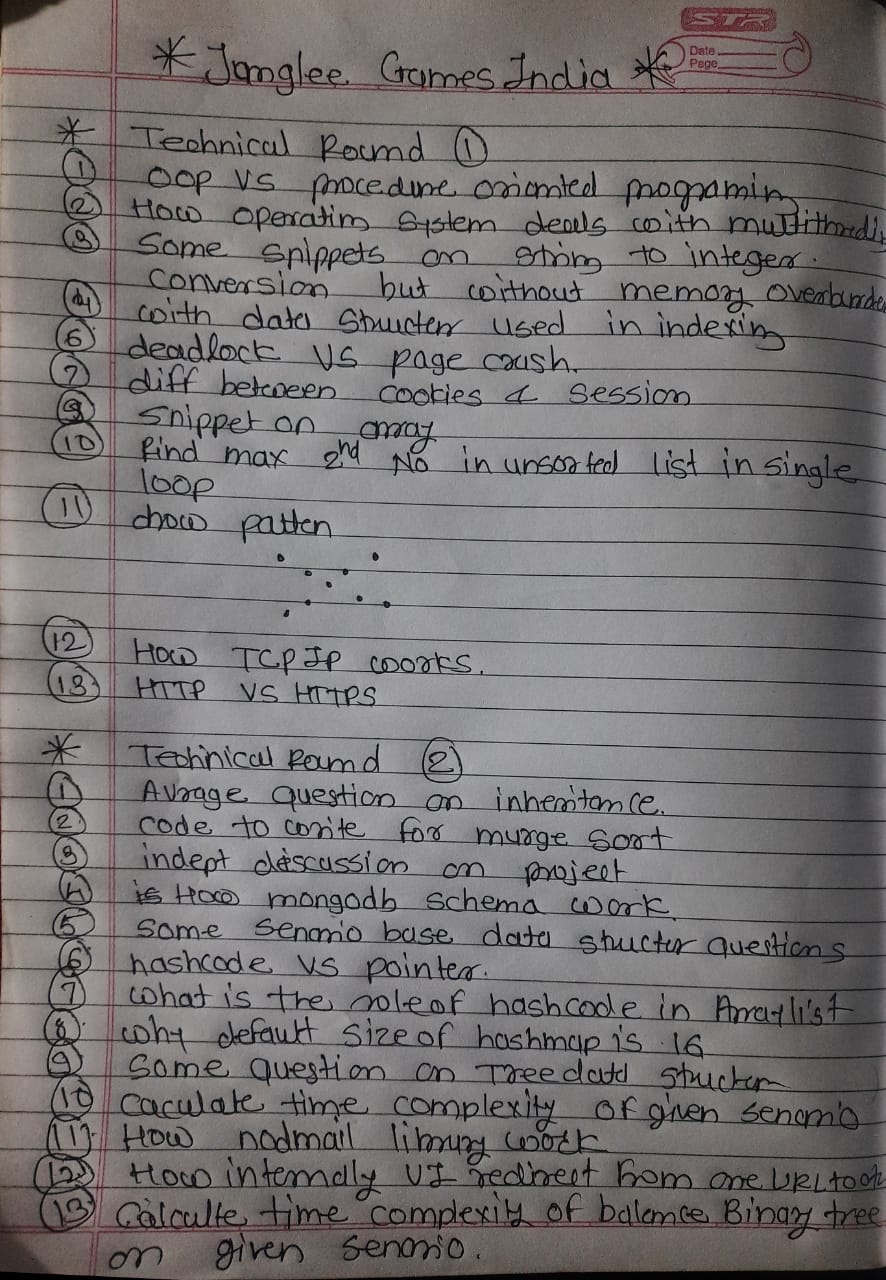 STR
Date
Page
* Jonglee Games India *
* Technical Round ①
① OOP VS procedure oriented programing
② How operatim system deals with multithredi
③ Some snippets on string to integer.
conversion but without memory overburden
④ with data structerr used in indexing
⑥ deadlock VS page crash.
⑦ diff between cookies & session
⑨ snippet on array
⑩ Find max 2nd No in unsorted list in single
loop
⑪ chow patten
⑫ How TCP IP works.
⑬ HTTP VS HTTPS
* Technical Round ②
① Avrage question on inheritance.
② code to write for murge sort
③ indept discussion on project
④ is How mongodb schema work.
⑤ some senario base data stucter questions
⑥ hashcode vs pointer.
⑦ what is the role of hashcode in Arraylist
⑧ why default size of hashmap is 16
⑨ some question on Tree data structur
⑩ caculate time complexity of given senario
⑪ How nodmail library work
⑫ How internally UI redirect from one URL to oth
⑬ Calculte time complexity of balance Binary tree
on given senario.